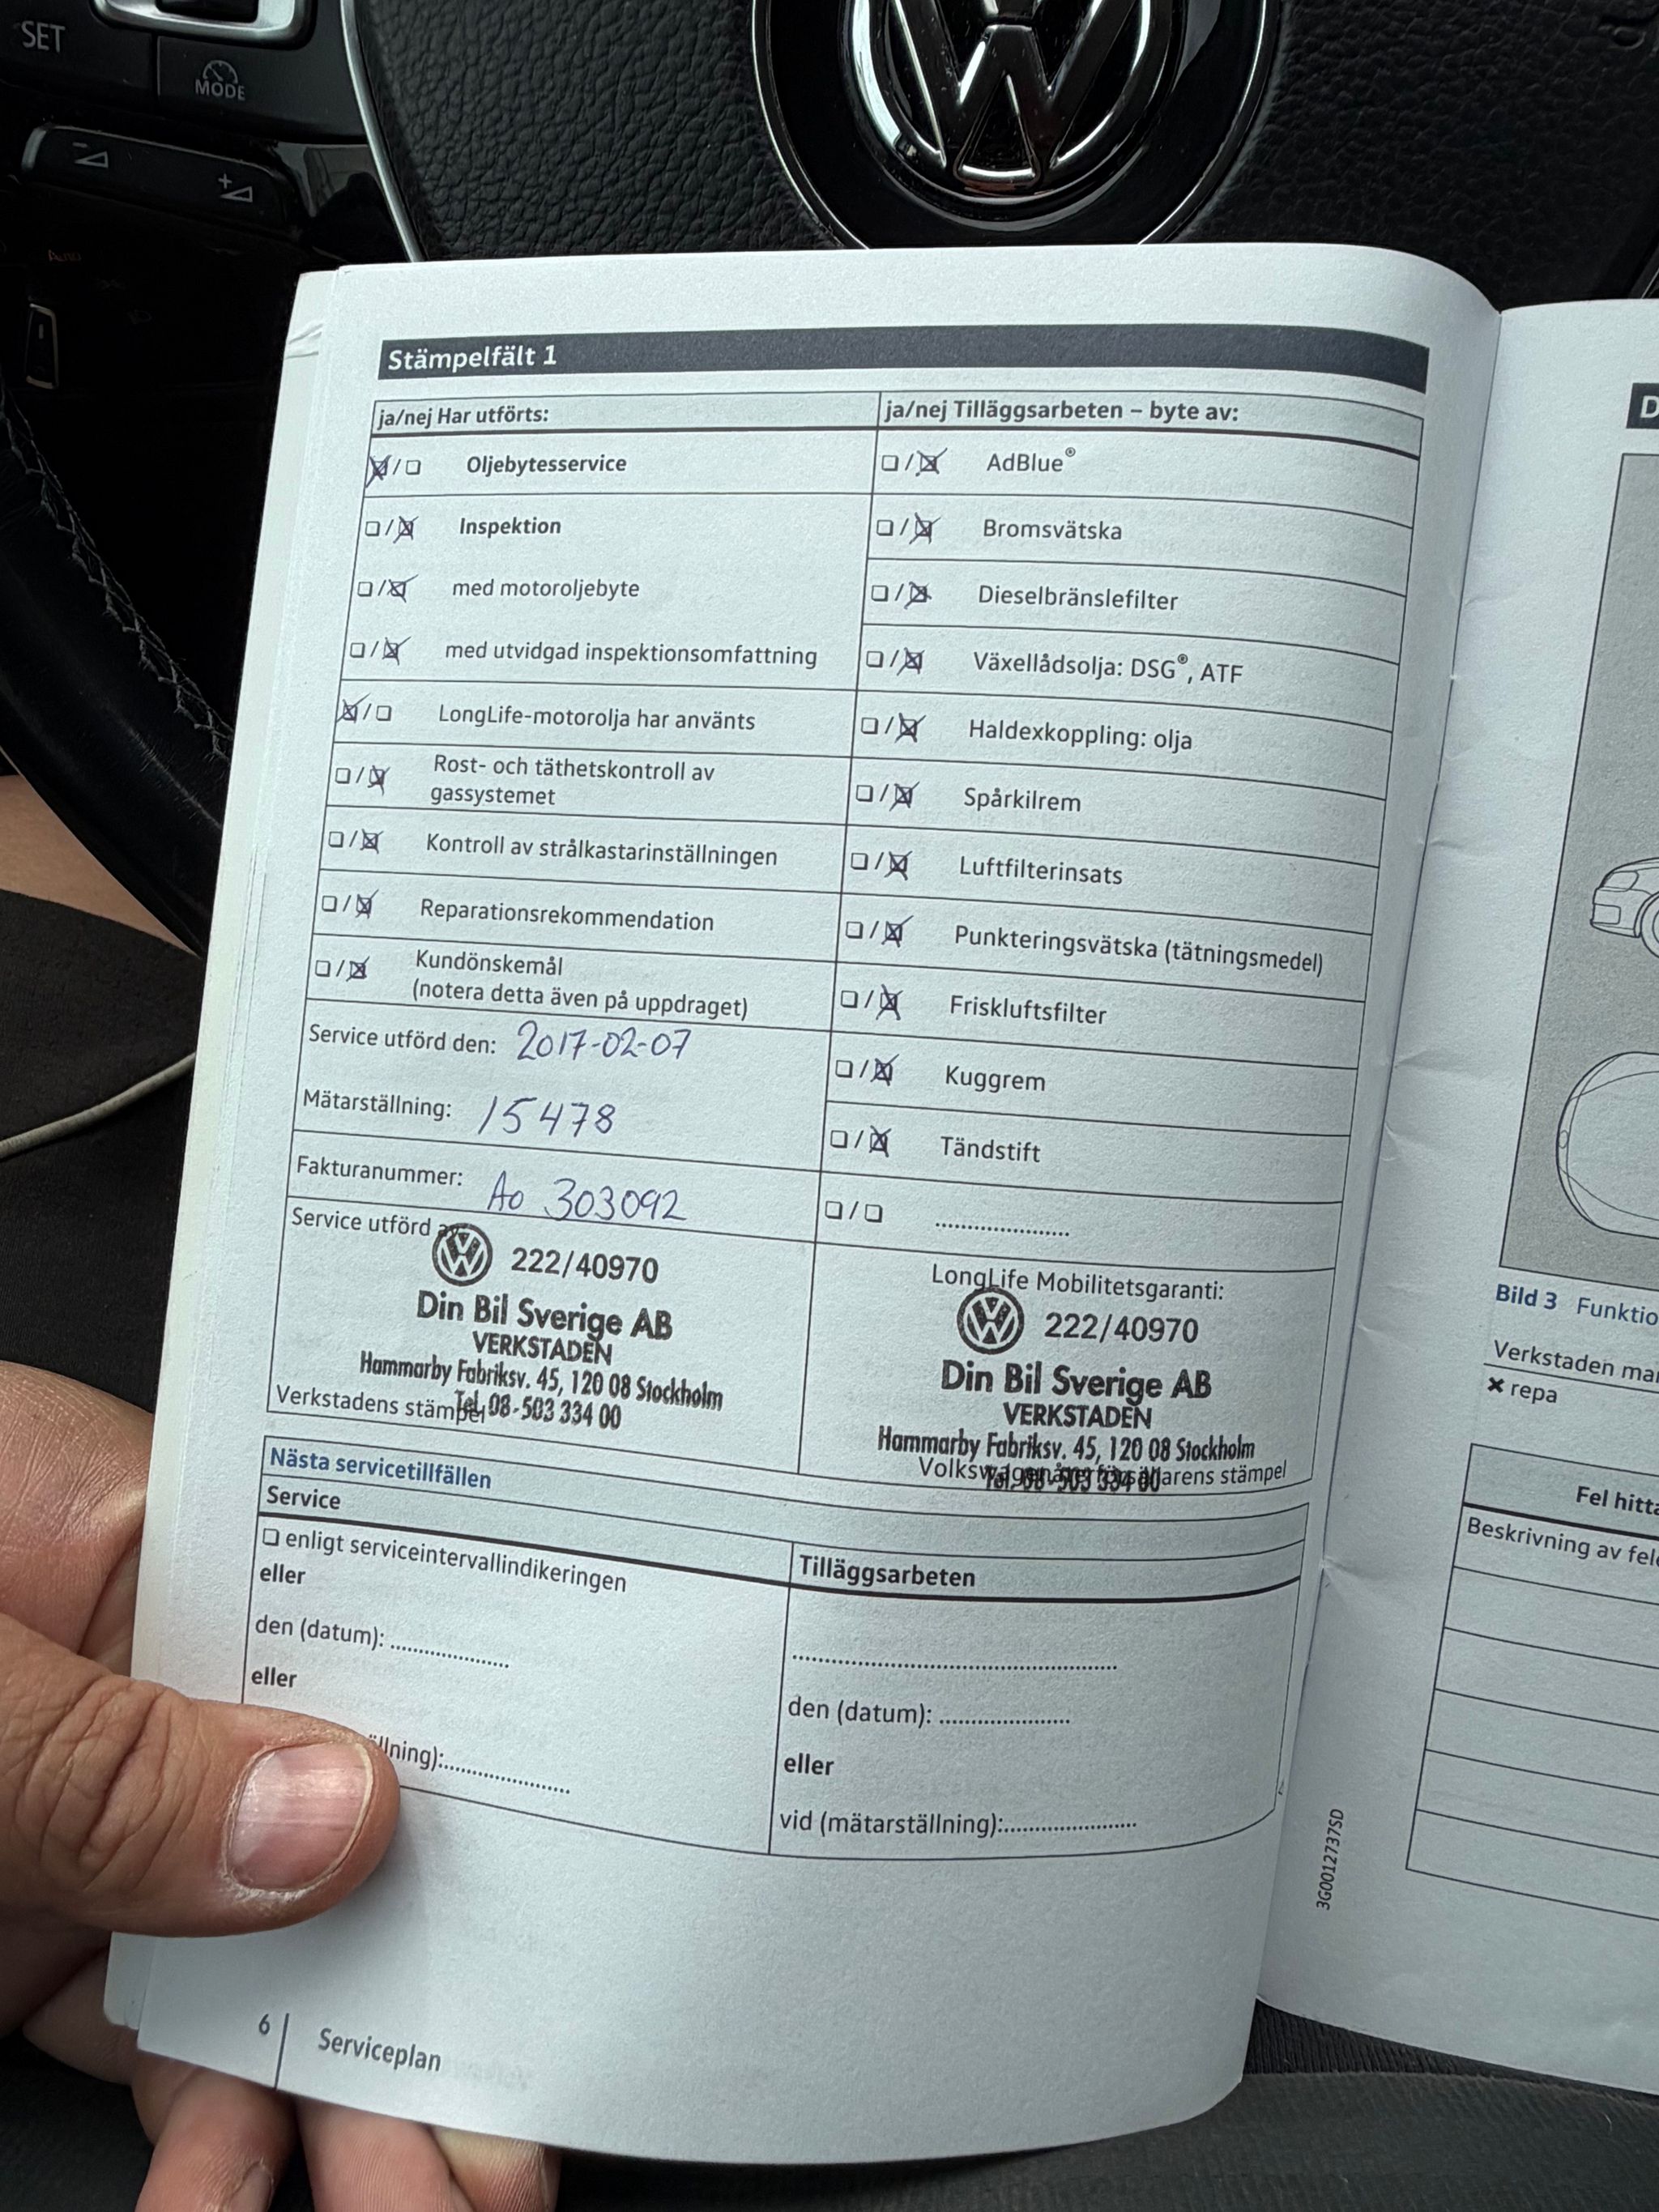 SET
MODE
Stämpelfält 1
ja/nej Har utförts:
Oljebytesservice
Inspektion
med motoroljebyte
med utvidgad inspektionsomfattning
LongLife-motorolja har använts
Rost- och täthetskontroll av
gassystemet
Kontroll av strålkastarinställningen
Reparationsrekommendation
Kundönskemål
(notera detta även på uppdraget)
Service utförd den: 2017-02-07
Mätarställning: 15478
Fakturanummer: Ao 303092
Service utförd av:
222/40970
Din Bil Sverige AB
VERKSTADEN
Hammarby Fabriksv. 45, 120 08 Stockholm
Tel. 08-503 334 00
Verkstadens stämpel
ja/nej Tilläggsarbeten – byte av:
AdBlue®
Bromsvätska
Dieselbränslefilter
Växellådsolja: DSG®, ATF
Haldexkoppling: olja
Spårkilrem
Luftfilterinsats
Punkteringsvätska (tätningsmedel)
Friskluftsfilter
Kuggrem
Tändstift
....................
LongLife Mobilitetsgaranti:
222/40970
Din Bil Sverige AB
VERKSTADEN
Hammarby Fabriksv. 45, 120 08 Stockholm
Tel. 08-503 334 00
stämpel
Nästa servicetillfällen
Service
enligt serviceintervallindikeringen
eller
den (datum): ..................
eller
ällning):...................
Tilläggsarbeten
..................................................
den (datum): ....................
eller
vid (mätarställning):....................
6
Serviceplan
3G0012737SD
D
Bild 3 Funktio
Verkstaden mar
✖ repa
Fel hitta
Beskrivning av fele